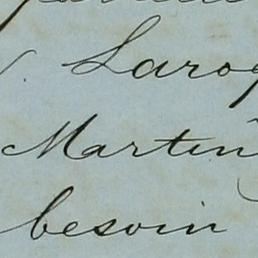 Laroq
Martin
besoin